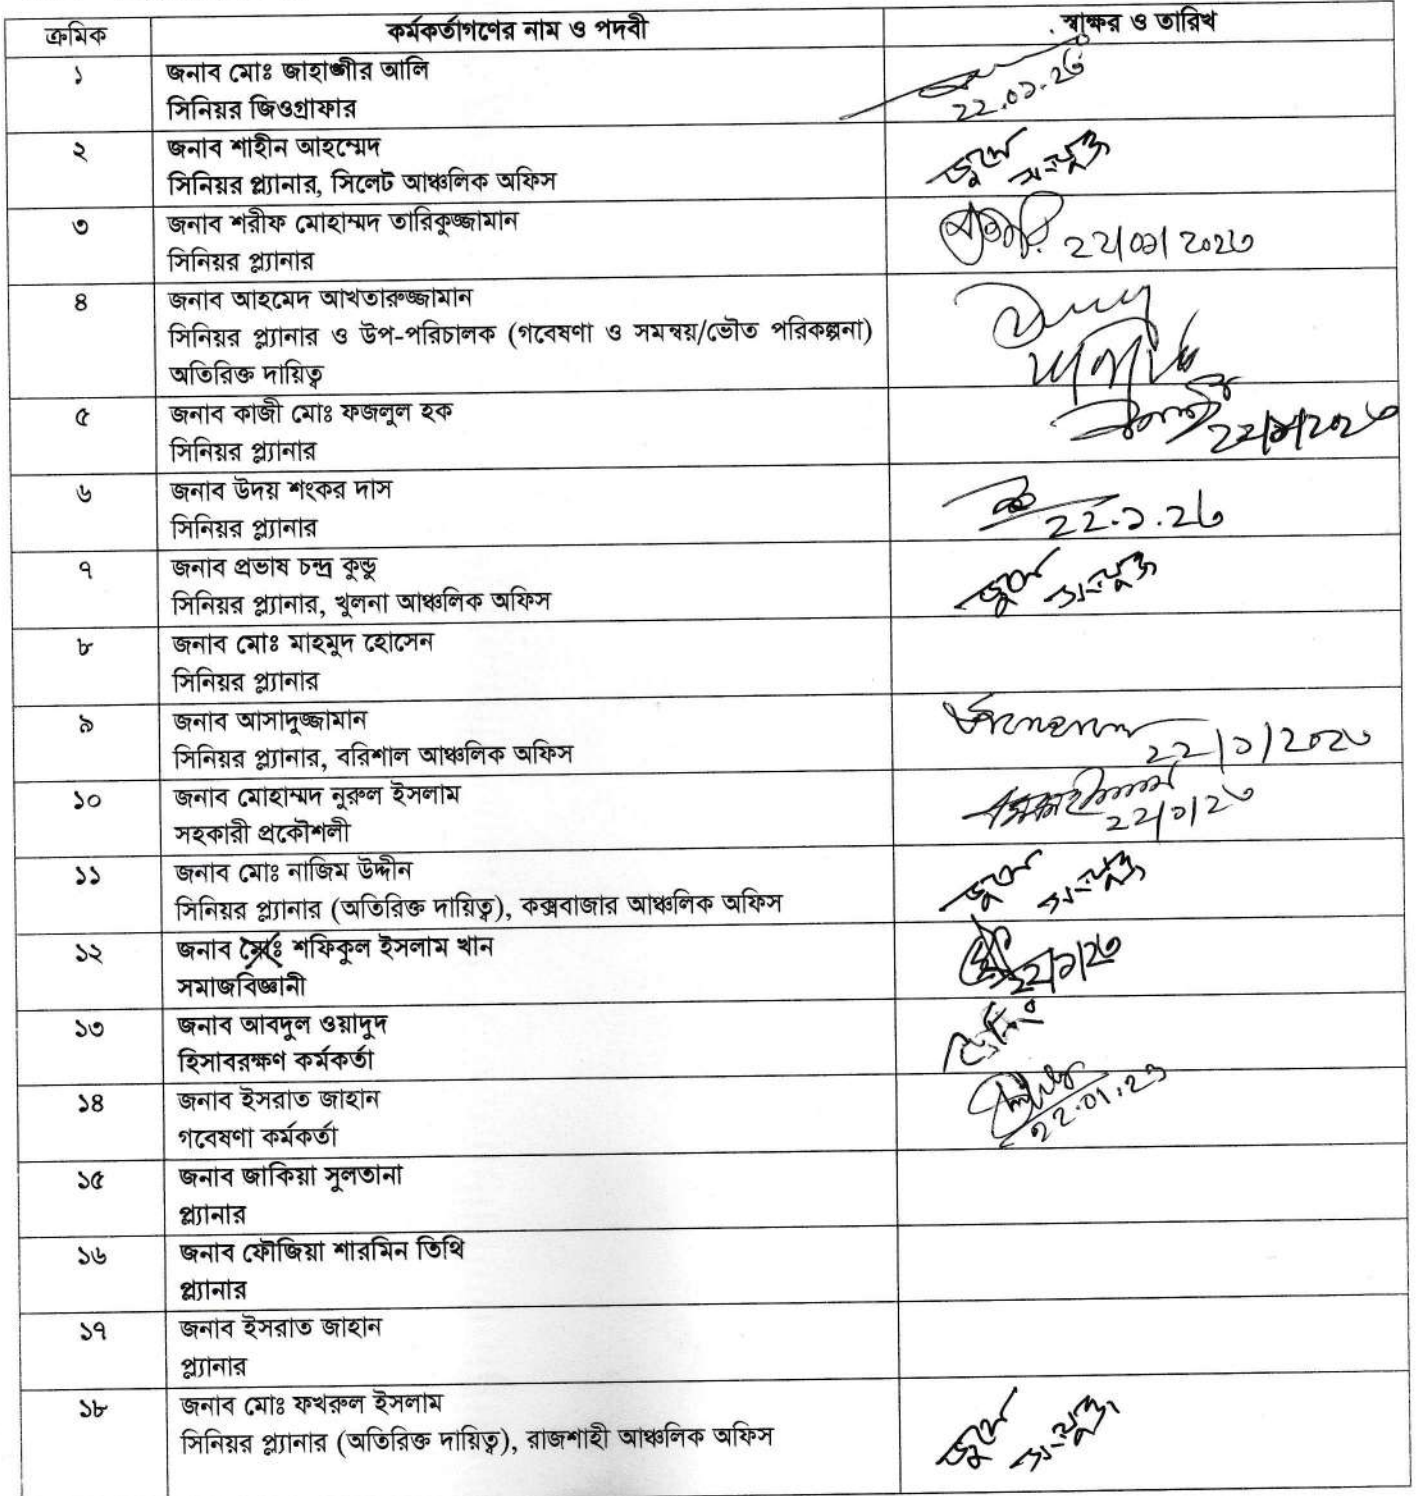 ক্রমিক কর্মকর্তাগণের নাম ও পদবী স্বাক্ষর ও তারিখ
১ জনাব মোঃ জাহাঙ্গীর আলি
সিনিয়র জিওগ্রাফার
২ জনাব শাহীন আহম্মেদ
সিনিয়র প্ল্যানার, সিলেট আঞ্চলিক অফিস
৩ জনাব শরীফ মোহাম্মদ তারিকুজ্জামান
সিনিয়র প্ল্যানার
৪ জনাব আহমেদ আখতারুজ্জামান
সিনিয়র প্ল্যানার ও উপ-পরিচালক (গবেষণা ও সমন্বয়/ভৌত পরিকল্পনা)
অতিরিক্ত দায়িত্ব
৫ জনাব কাজী মোঃ ফজলুল হক
সিনিয়র প্ল্যানার
৬ জনাব উদয় শংকর দাস
সিনিয়র প্ল্যানার
৭ জনাব প্রভাষ চন্দ্র কুন্ডু
সিনিয়র প্ল্যানার, খুলনা আঞ্চলিক অফিস
৮ জনাব মোঃ মাহমুদ হোসেন
সিনিয়র প্ল্যানার
৯ জনাব আসাদুজ্জামান
সিনিয়র প্ল্যানার, বরিশাল আঞ্চলিক অফিস
১০ জনাব মোহাম্মদ নুরুল ইসলাম
সহকারী প্রকৌশলী
১১ জনাব মোঃ নাজিম উদ্দীন
সিনিয়র প্ল্যানার (অতিরিক্ত দায়িত্ব), কক্সবাজার আঞ্চলিক অফিস
১২ জনাব মোঃ শফিকুল ইসলাম খান
সমাজবিজ্ঞানী
১৩ জনাব আবদুল ওয়াদুদ
হিসাবরক্ষণ কর্মকর্তা
১৪ জনাব ইসরাত জাহান 22.01.23
গবেষণা কর্মকর্তা
১৫ জনাব জাকিয়া সুলতানা
প্ল্যানার
১৬ জনাব ফৌজিয়া শারমিন তিথি
প্ল্যানার
১৭ জনাব ইসরাত জাহান
প্ল্যানার
১৮ জনাব মোঃ ফখরুল ইসলাম
সিনিয়র প্ল্যানার (অতিরিক্ত দায়িত্ব), রাজশাহী আঞ্চলিক অফিস